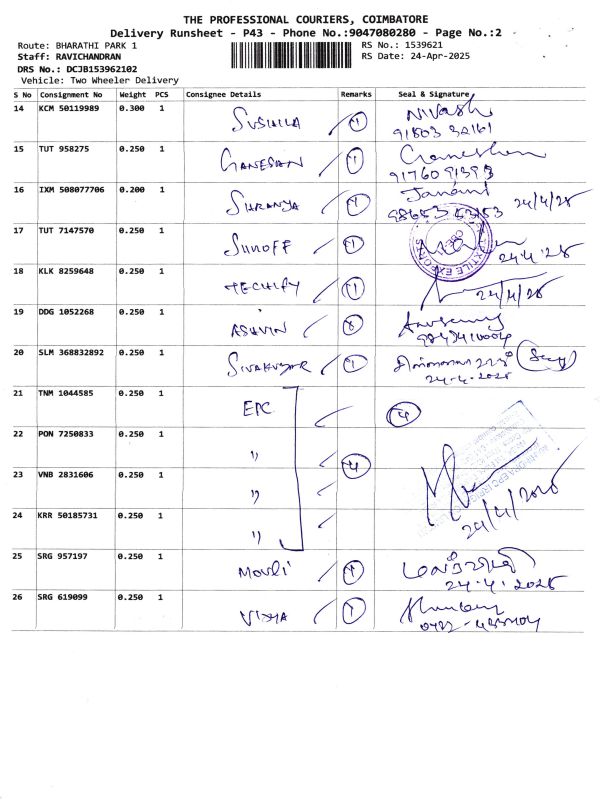 THE PROFESSIONAL COURIERS, COIMBATORE
Delivery Runsheet - P43 - Phone No.:9047080280 - Page No.:2
Route: BHARATHI PARK 1
RS No.: 1539621
Staff: RAVICHANDRAN
RS Date: 24-Apr-2025
DRS No.: DCJB153962102
Vehicle: Two Wheeler Delivery
S No Consignment No Weight PCS Consignee Details Remarks Seal & Signature
14 KCM 50119989 0.300 1 SUSHILA 1 Nivash
15 TUT 958275 0.250 1 GANESAN 1 Ganeshan
9176091393
16 IXM 508077706 0.200 1 SURANYA 1 Janani 24/4/25
17 TUT 7147570 0.250 1 SUNOFF 1 24.4.25
18 KLK 8259648 0.250 1 TECHIFY 1 24/4/25
19 DDG 1052268 0.250 1 ASHVIN
20 SLM 368832892 0.250 1 SIVAKUMAR 1
24-4-2025
21 TNM 1044585 0.250 1 EPC 4
22 PON 7250833 0.250 1 " 4
23 VNB 2831606 0.250 1 "
24 KRR 50185731 0.250 1 " 24/4/2025
25 SRG 957197 0.250 1 Mouli 1
24.4.2025
26 SRG 619099 0.250 1 VIDYA 1